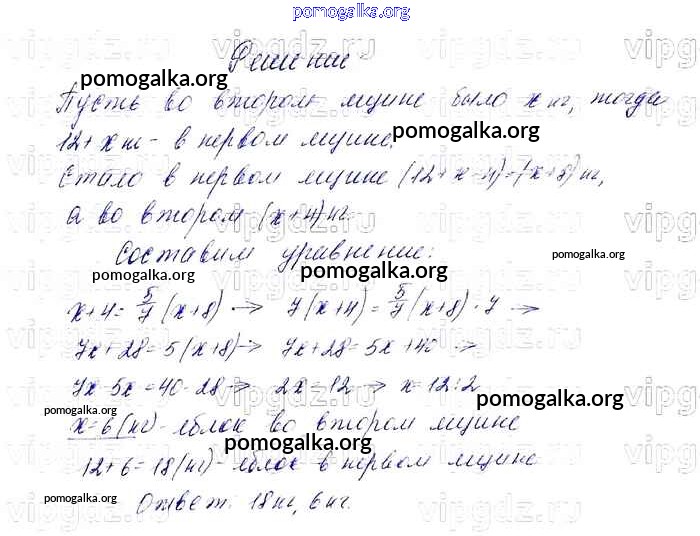 pomogalka.org
Решение
pomogalka.org
Пусть во втором ящике было x кг, тогда
12+x кг - в первом ящике.
pomogalka.org
Стало в первом ящике (12+x-4)=(x+8) кг,
а во втором (x+4) кг.
Составим уравнение:
pomogalka.org pomogalka.org pomogalka.org
x+4=5/7(x+8) → 7(x+4)=5/7(x+8)·7 →
7x+28=5(x+8) → 7x+28=5x+40 →
7x-5x=40-28 → 2x=12 → x=12:2
pomogalka.org pomogalka.org
x=6(кг) - яблок во втором ящике
pomogalka.org
12+6=18(кг) - яблок в первом ящике
pomogalka.org pomogalka.org
Ответ. 18 кг, 6 кг.